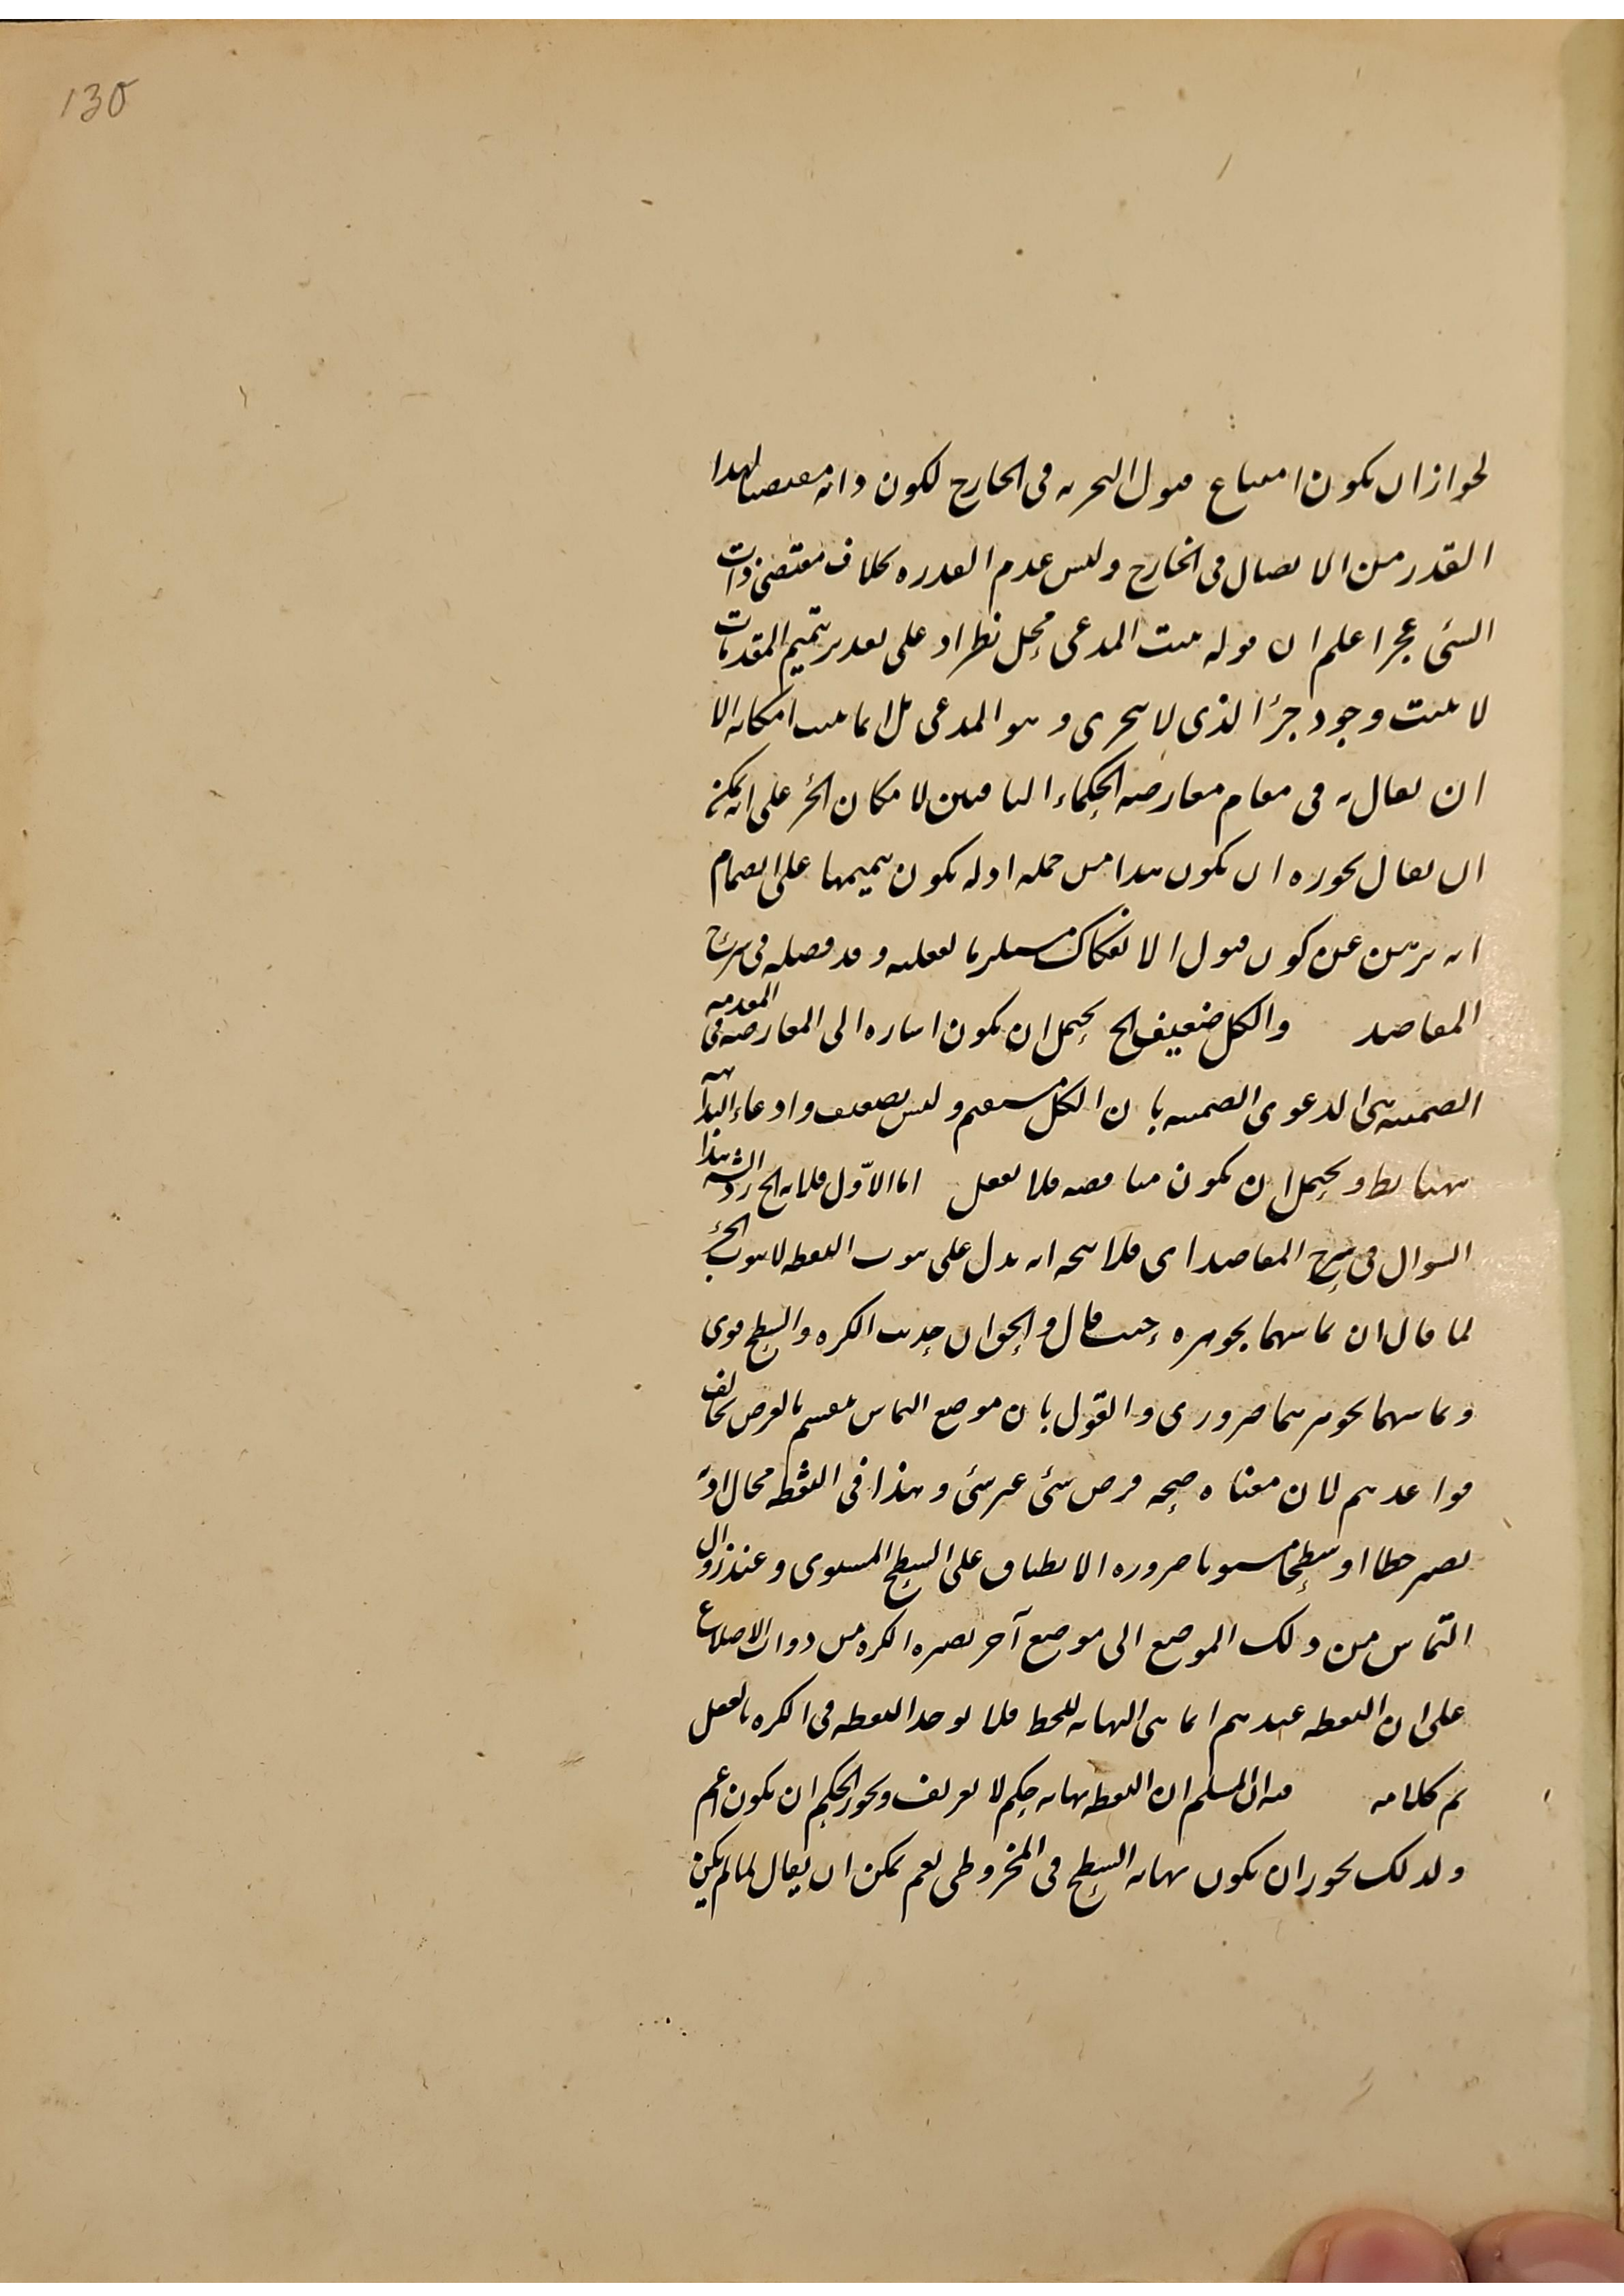 130
لجواز ان يكون امتناع قبول التجزيه فى الخارج لكون ذاته مقتضيا لهذا
القدر من الاتصال فى الخارج وليس عدم القدره بخلاف مقتضى ذات
الشئ عجزا اعلم ان قوله يثبت المدعى محل نظر اذ على تقدير تتميم المقدمات
لا يثبت وجود جزء الذى لا يتجزى وهو المدعى بل انما يثبت امكانه الا
ان يقال به فى مقام معارضه الحكماء النافين لامكان الجزء على انه يمكن
ان يقال بجوزه ان يكون هذا من جمله ادله يكون تتميمها على انضمام
انه برهن عن كون قبول الانفكاك مستلزما لفعليه وقد فصله فى شرح
المقاصد والكل ضعيف الخ يحتمل ان يكون اشاره الى المعارضه فى المقدمه
الضمنيه هى الدعوى الضمنيه بان الكل مستقيم وليس بضعيف وادعاء البداهه
ههنا بط ويحتمل ان يكون مناقضه فلا تغفل اما الاول فلانه الخ رد الشه هذا
السوال فى شرح المقاصد اى فلا يتجه انه يدل على ثبوت النقطه لا ثبوت الجزء
لما قال ان تماسهما بجوهره حيث قال والجواب ان حديث الكره والسطح قوى
وتماسهما بجوهرهما ضرورى والقول بان موضع التماس منقسم بالفرض يخالف
قواعدهم لان معناه صحه فرض شئ غير شئ وهذا فى النقطه محال اذ
يصير خطا او سطحا مستويا ضروره الانطباق على السطح المستوى وعند زوال
التماس من ذلك الموضع الى موضع آخر تصير الكره من ذوات الاضلاع
على ان النقطه عندهم انما هى النهايه للخط فلا توجد النقطه فى الكره بالفعل
تم كلامه فيه ان المسلم ان النقطه نهايه حكم لا تعريف ويجوز الحكم ان يكون اعم
ولذلك يجوز ان يكون نهايه السطح فى المخروطى نعم يمكن ان يقال لما لم يكن